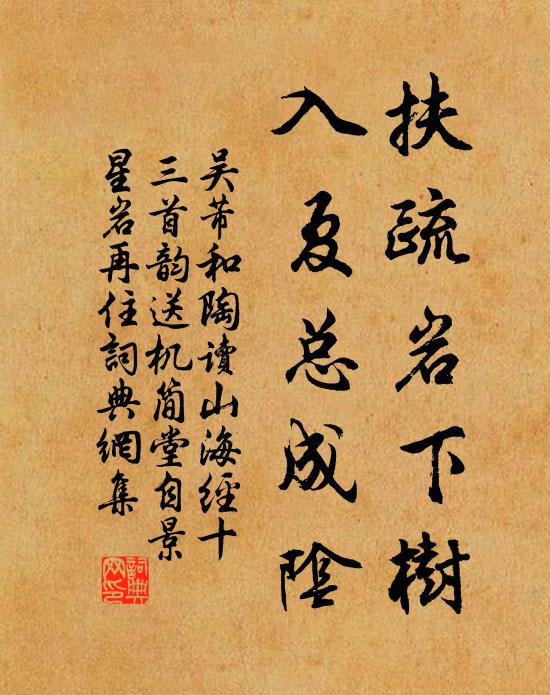 扶疏岩下樹
入夏总成陰
吴芾和陶读山海經十
三首韵送机简堂自景
星岩再住詞典網集
詞典网印